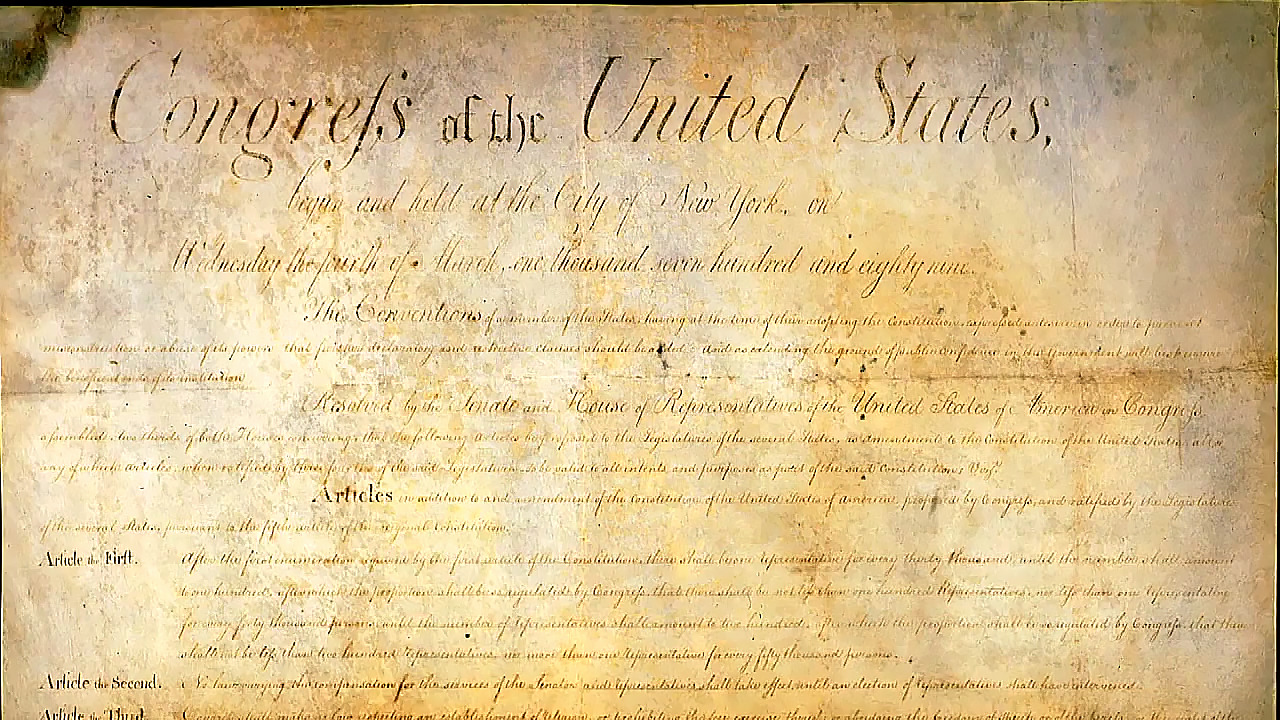 Congreſs of the United States,
begun and held at the City of New York, on
Wednesday the fourth of March, one thousand seven hundred and eighty nine.
The Conventions of a number of the States, having at the time of their adopting the Constitution, expressed a desire, in order to prevent
misconstruction or abuse of its powers, that further declaratory and restrictive clauses should be added: And as extending the ground of public confidence in the Government, will best ensure
the beneficent ends of its institution
Resolved by the Senate and House of Representatives of the United States of America in Congreſs
aſsembled, two thirds of both Houses concurring, that the following Articles be proposed to the Legislatures of the several States, as amendments to the Constitution of the United States, all or
any of which articles, when ratified by three fourths of the said Legislatures, to be valid to all intents and purposes, as part of the said Constitution; Vizt.
Articles in addition to, and amendment of the Constitution of the United States of America, proposed by Congreſs, and ratified by the Legislatures
of the several States, pursuant to the fifth Article of the original Constitution.
Article the First. After the first enumeration required by the first Article of the Constitution, there shall be one Representative for every thirty thousand, until the number shall amount
to one hundred, after which the proportion shall be so regulated by Congreſs, that there shall be not leſs than one hundred Representatives, nor leſs than one Representative
for every forty thousand persons, until the number of Representatives shall amount to two hundred, after which the proportion shall be so regulated by Congreſs, that there
shall not be leſs than two hundred Representatives, nor more than one Representative for every fifty thousand persons.
Article the Second. No law, varying the compensation for the services of the Senators and Representatives, shall take effect, until an election of Representatives shall have intervened.
Article the Third. Congreſs shall make no law respecting an establishment of religion, or prohibiting the free exercise thereof; or abridging the freedom of speech, or of the